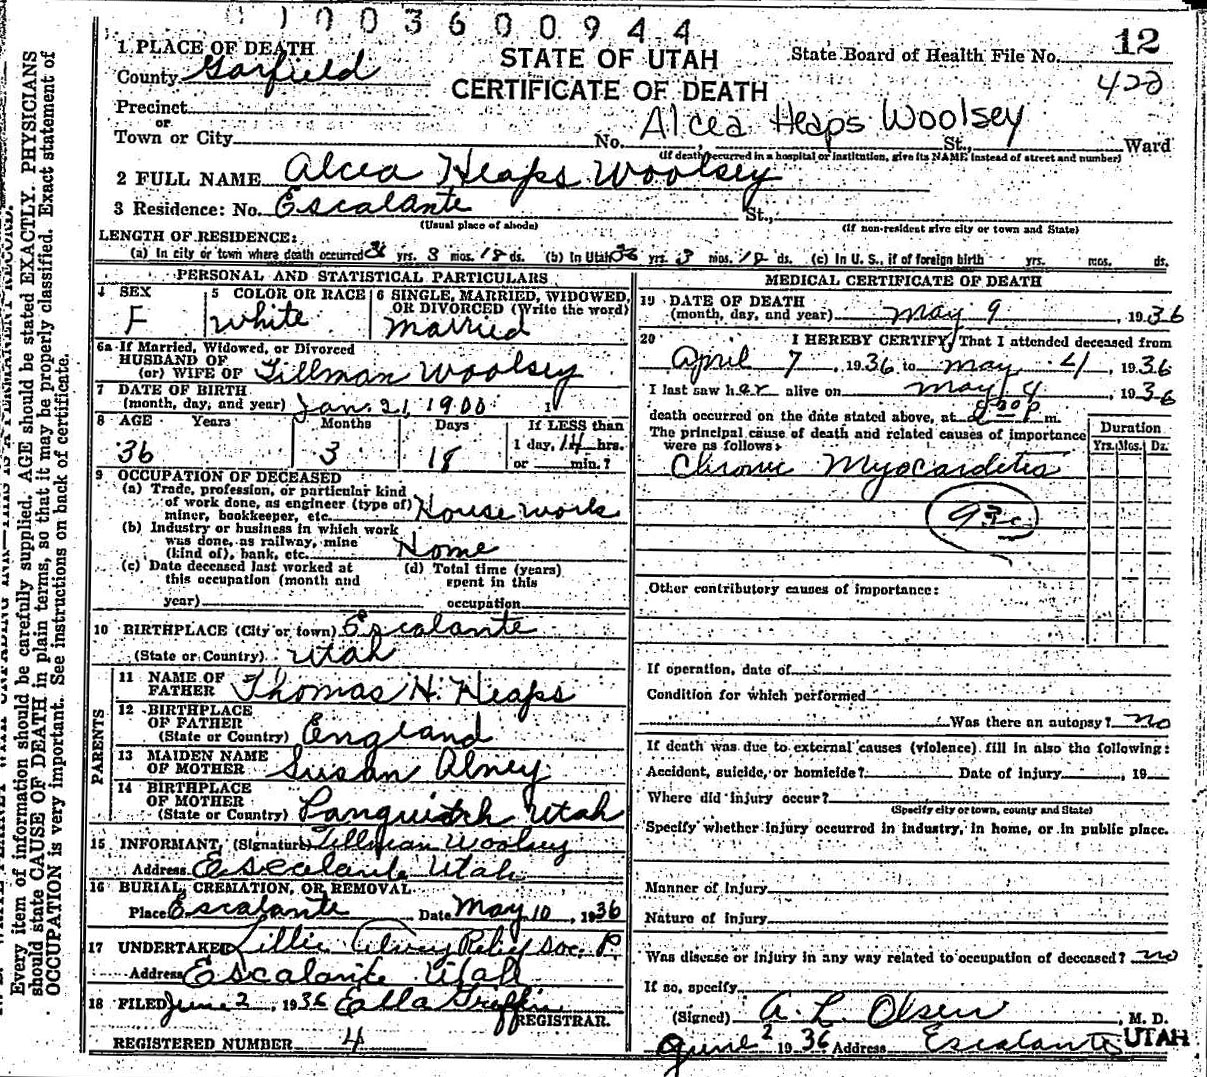 0 1 0 0 3 6 0 0 9 4 4
1 PLACE OF DEATH
STATE OF UTAH
State Board of Health File No. 12
County Garfield
CERTIFICATE OF DEATH
420
Precinct
or
Town or City
No. Alcea Heaps Woolsey St., Ward
(If death occurred in a hospital or institution, give its NAME instead of street and number)
2 FULL NAME Alcea Heaps Woolsey
3 Residence: No. Escalante St.,
(Usual place of abode)
(If non-resident give city or town and State)
LENGTH OF RESIDENCE:
(a) In city or town where death occurred 36 yrs. 3 mos. 18 ds. (b) In Utah 36 yrs. 3 mos. 18 ds. (c) In U. S., if of foreign birth yrs. mos. ds.
PERSONAL AND STATISTICAL PARTICULARS
4 SEX
F
5 COLOR OR RACE
White
6 SINGLE, MARRIED, WIDOWED, OR DIVORCED (Write the word)
Married
6a If Married, Widowed, or Divorced
HUSBAND OF
(or) WIFE OF Tillman Woolsey
7 DATE OF BIRTH
(month, day, and year) Jan. 21, 1900 1
8 AGE Years Months Days If LESS than
36 3 18 1 day, 14 hrs.
or min.?
9 OCCUPATION OF DECEASED
(a) Trade, profession, or particular kind
of work done, as engineer (type of)
miner, bookkeeper, etc. House work
(b) Industry or business in which work
was done, as railway, mine
(kind of), bank, etc. Home
(c) Date deceased last worked at
this occupation (month and
year)
(d) Total time (years)
spent in this
occupation
10 BIRTHPLACE (City or town) Escalante
(State or Country) Utah
PARENTS
11 NAME OF
FATHER Thomas H. Heaps
12 BIRTHPLACE
OF FATHER
(State or Country) England
13 MAIDEN NAME
OF MOTHER Susan Alvey
14 BIRTHPLACE
OF MOTHER
(State or Country) Panguitch Utah
15 INFORMANT, (Signature) Tillman Woolsey
Address Escalante Utah
16 BURIAL, CREMATION, OR REMOVAL
Place Escalante Date May 10, 1936
17 UNDERTAKER Lillie Alvey Relief Soc. P.
Address Escalante Utah
18 FILED June 2, 1936 Ella Griffin
REGISTRAR.
REGISTERED NUMBER 4
MEDICAL CERTIFICATE OF DEATH
19 DATE OF DEATH
(month, day, and year) May 9, 1936
20 I HEREBY CERTIFY, That I attended deceased from
April 7, 1936 to May 4, 1936
I last saw her alive on May 4, 1936
death occurred on the date stated above, at 2:00 P m.
The principal cause of death and related causes of importance
were as follows:
Duration
Yrs. Mos. Ds.
Chronic Myocarditis
93c
Other contributory causes of importance:
If operation, date of
Condition for which performed
Was there an autopsy? no
If death was due to external causes (violence) fill in also the following:
Accident, suicide, or homicide? Date of injury, 19
Where did injury occur?
(Specify city or town, county and State)
Specify whether injury occurred in industry, in home, or in public place.
Manner of Injury
Nature of injury
Was disease or injury in any way related to occupation of deceased? no
If so, specify
(Signed) A. L. Olsen, M. D.
June 2 1936 Address Escalante UTAH
Every item of information should be carefully supplied. AGE should be stated EXACTLY. PHYSICIANS
should state CAUSE OF DEATH in plain terms, so that it may be properly classified. Exact statement of
OCCUPATION is very important. See instructions on back of certificate.